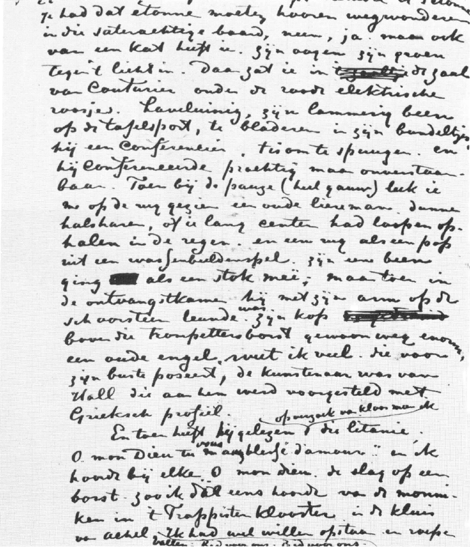 Je had dat etonne moeten hooren wegwonderen
in die saterachtige baard, neen, ja. maar ook
van een kat heeft ie. zijn oogen zijn groen
tegen 't licht in. Daar zat ie in de zaal
van Couturier onder de roode elektrische
roosje. zijn been
op de tafelsport, te bladeren in zijn bundeltjes
hij een Conferencier, 't is om te spuugen. en
hij Confereneerde prachtig maar onverstaan-
baar. Toen bij de pauze (heel gauw) leek ie
me op de rug gezien een oude liereman. dunne
halsharen, of ie lang centen had loopen op-
halen in de regen. en een rug als een pop
uit een wassenbeeldenspel. zijn eene been
ging als een stok mee, maar toen in
de ontvangstkamer hij met zijn arm op de
schoorsteen leunde. was zijn kop
boven die trompettersborst gewoon weg enorm,
een oude engel. weet ik veel. die voor
zijn buste poseert, de kunstenaar was van
Hall die aan hem werd voorgesteld met
Grieksch profiel.
op muziek van klaar maar ik
En toen heeft hij gelezen die litanie.
O mon Dieu vous m'avez blessé d'amour. en ik
hoorde bij elke O mon dieu. de slag op een
borst. zoo ik dat eens hoorde van de monni-
ken in 't Trappisten klooster in de kluis
van achel. Ik had wel willen opstaan en roepen